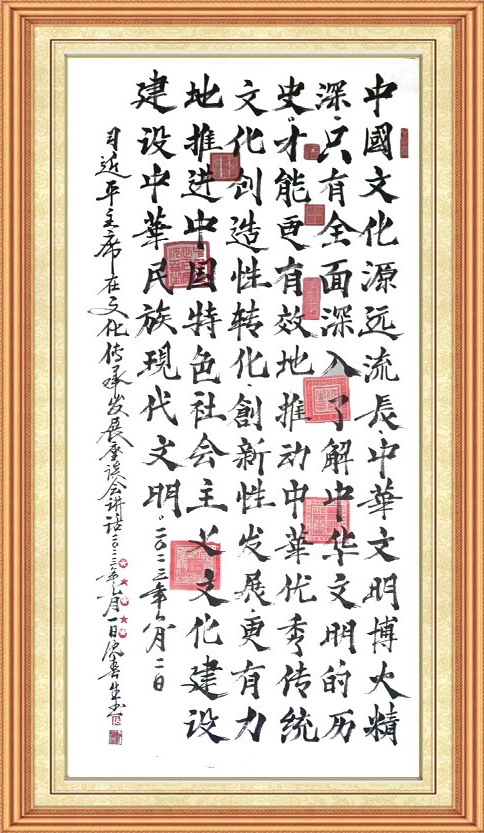 中國文化源远流長、中華文明博大精
深、只有全面深入了解中华文明的历
史、才能更有效地推动中華优秀传统
文化创造性转化、創新性发展、更有力
地推进中国特色社会主义文化建设
建设中華民族现代文明。二〇二三年六月二日
习近平主席在文化传承发展座谈会讲话二〇二三年六月一日